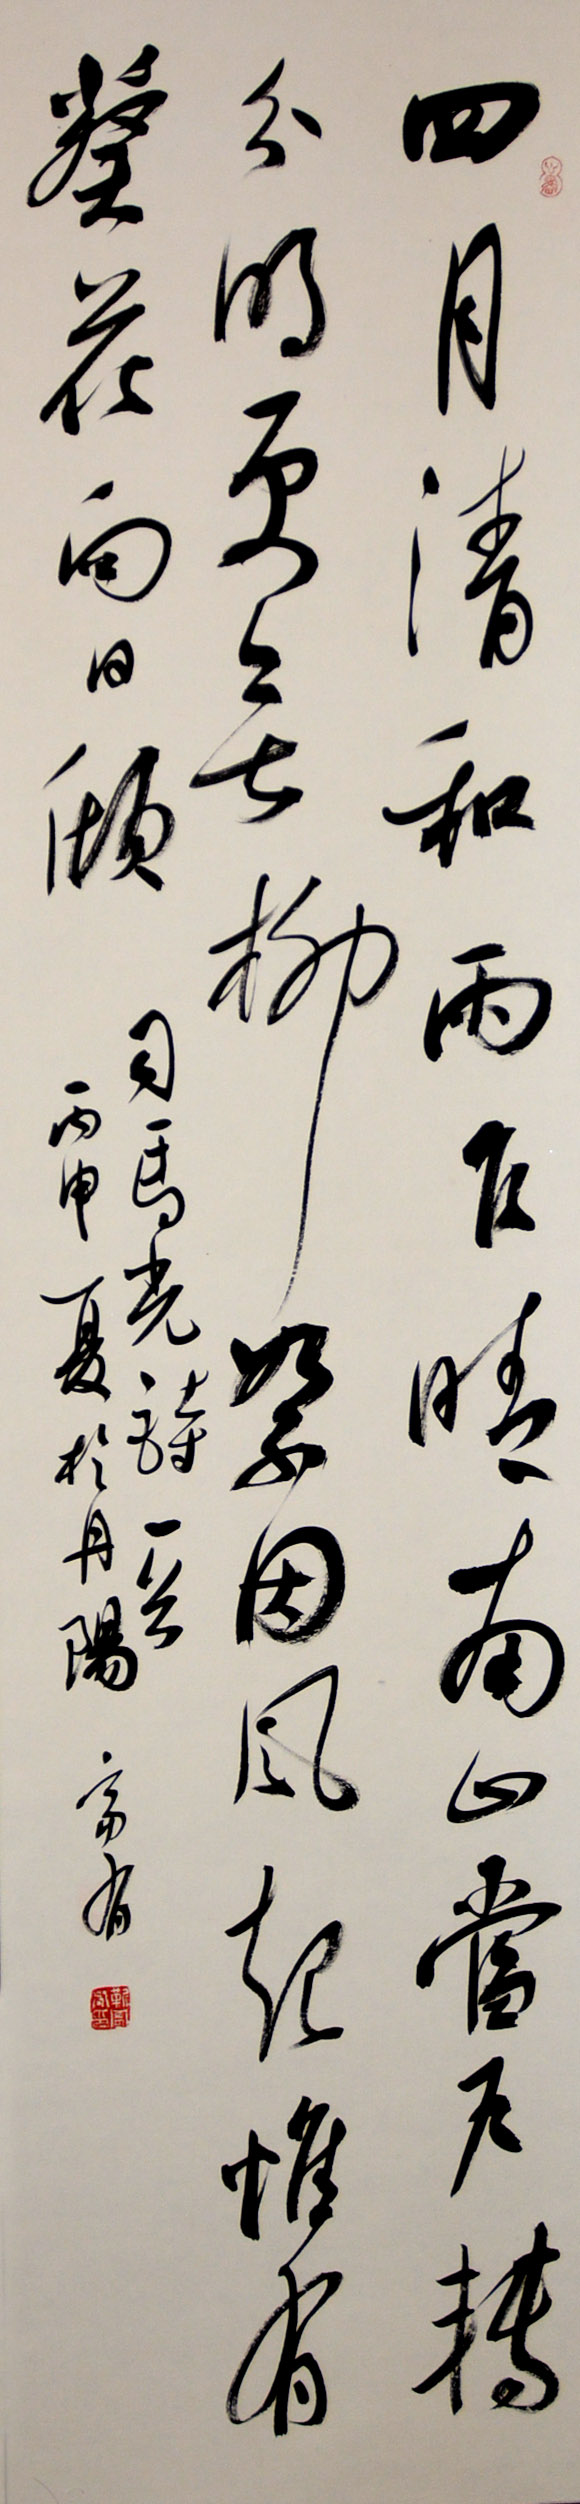 四月清和雨乍晴南山當戶轉
分明更無柳絮因風起惟有
葵花向日傾
司馬光詩一首
丙申夏於丹陽 富有